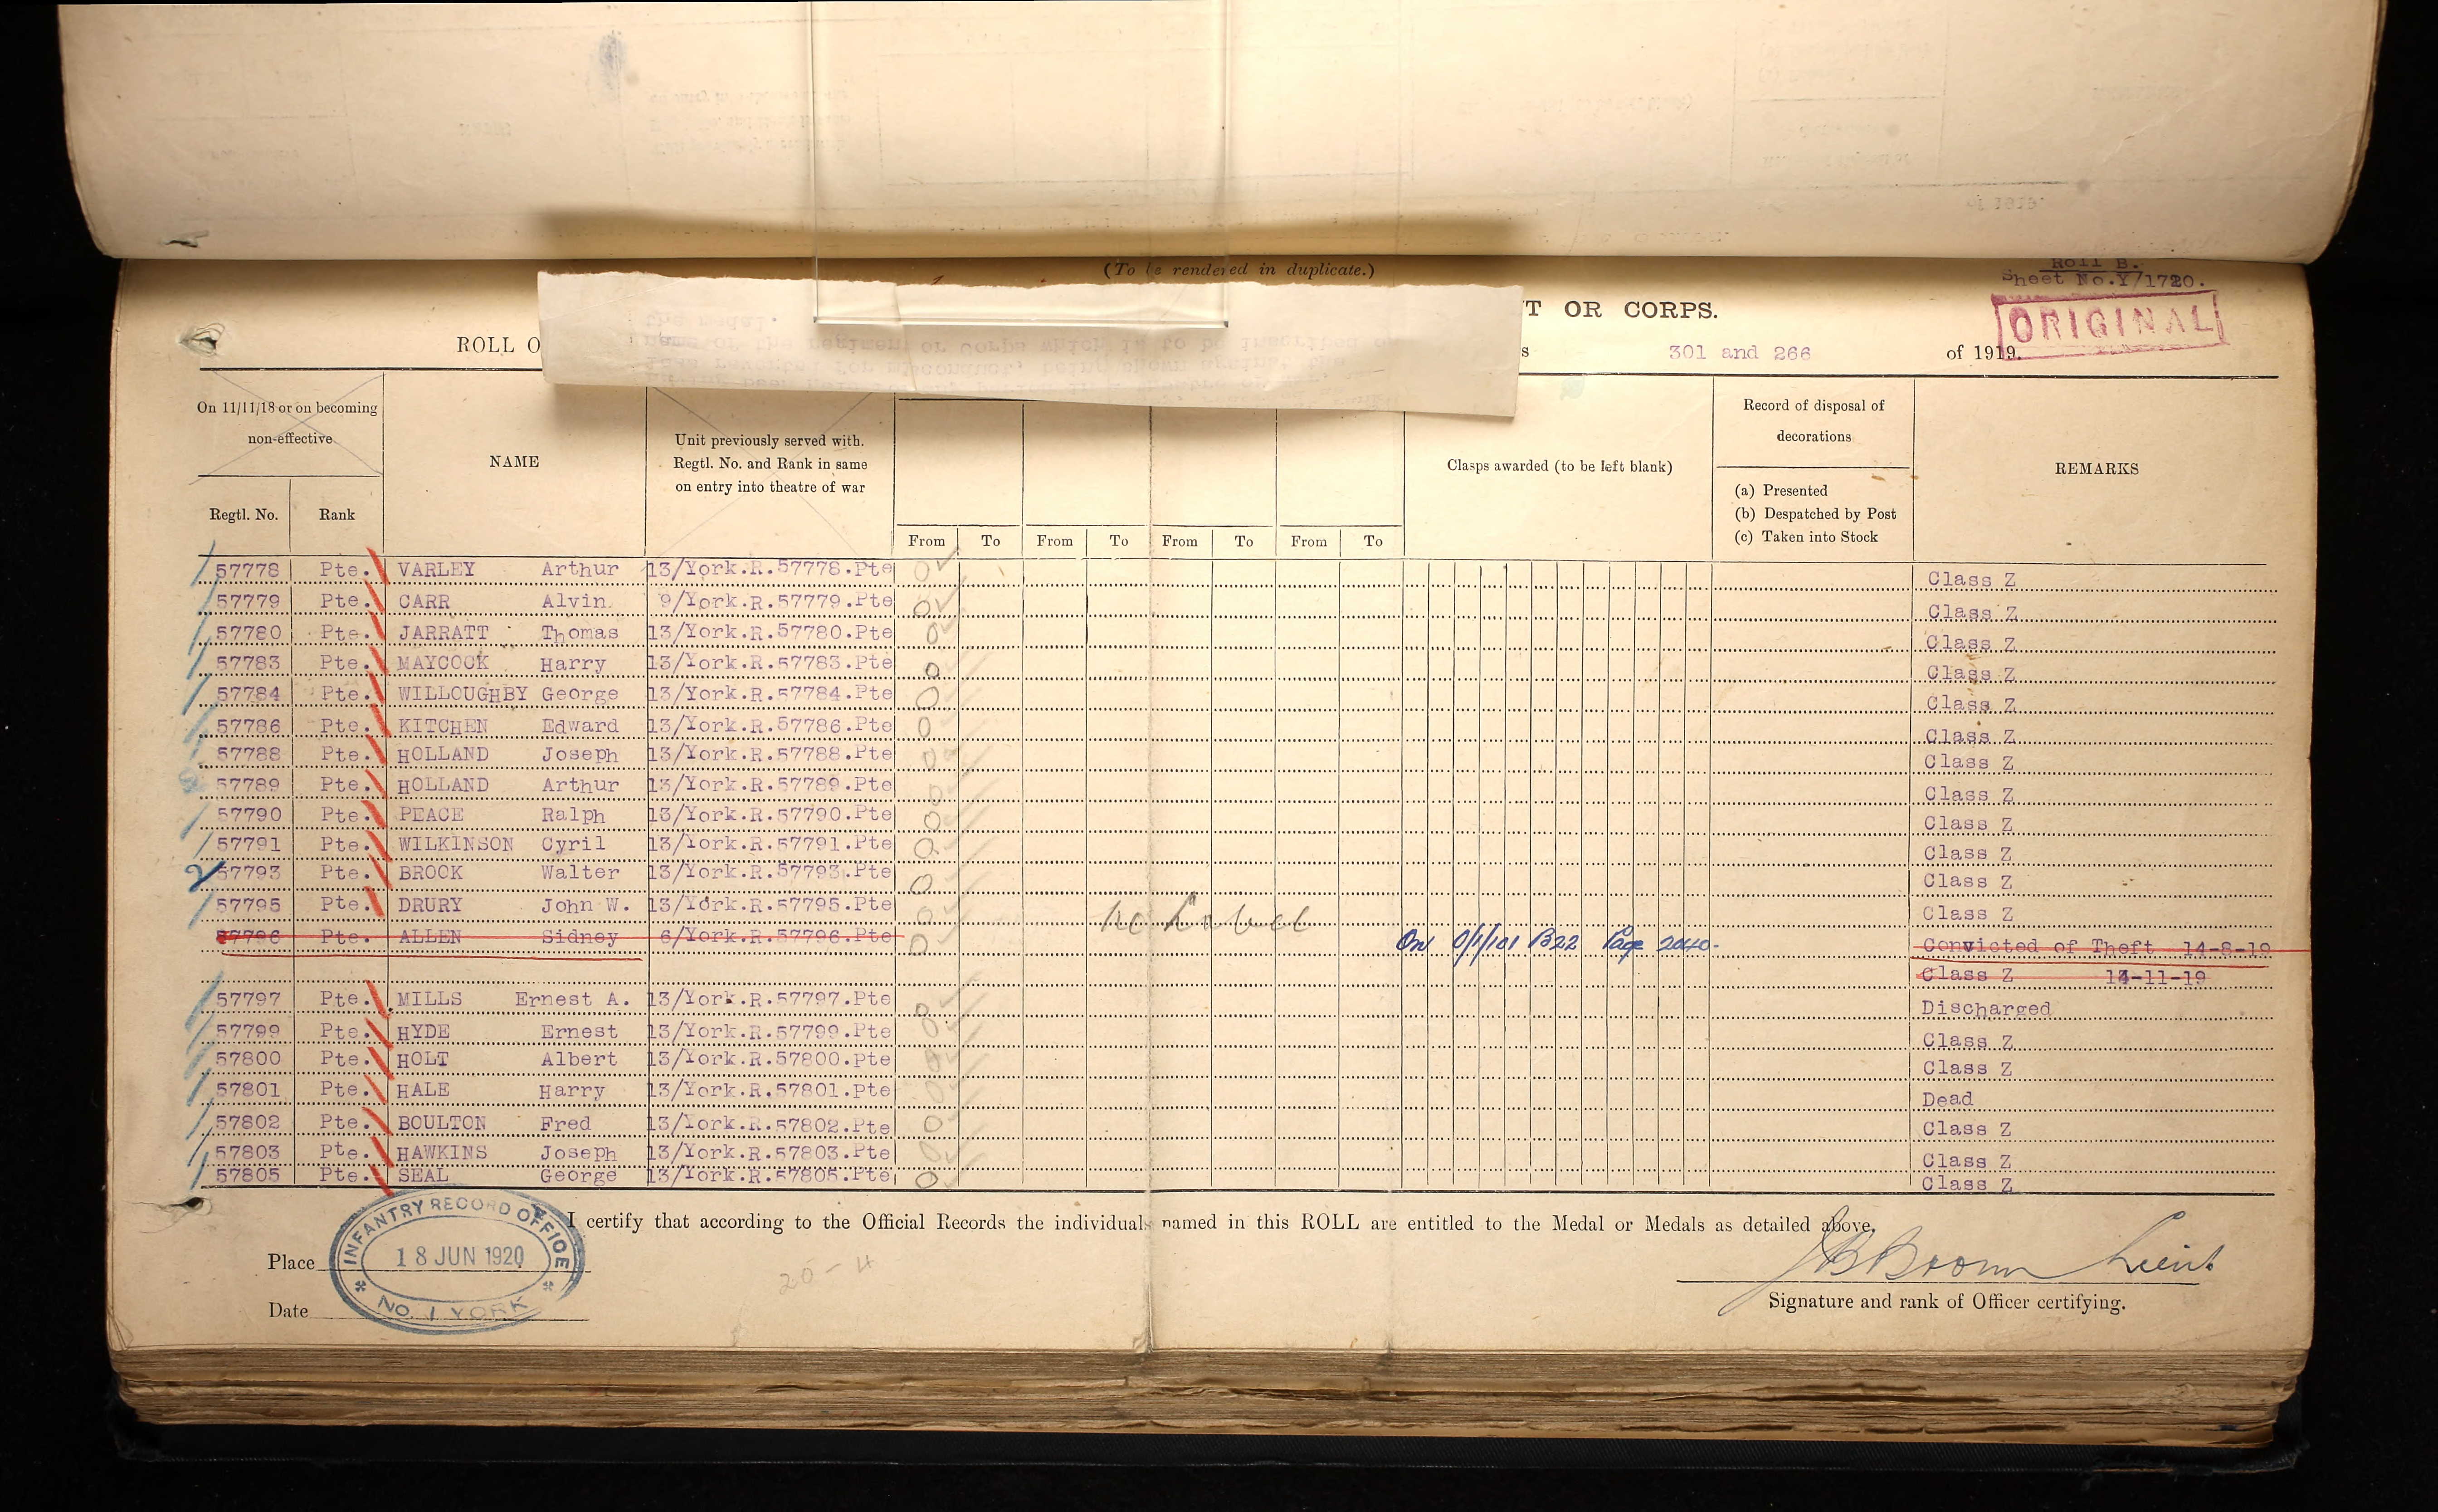 (To be rendered in duplicate.)
Roll B.
Sheet No.Y/1720.
T OR CORPS.
ORIGINAL
ROLL O
s 301 and 266 of 1919.
On 11/11/18 or on becoming non-effective
Regtl. No.
Rank
NAME
Unit previously served with.
Regtl. No. and Rank in same
on entry into theatre of war
From To From To From To From To
Clasps awarded (to be left blank)
Record of disposal of
decorations
(a) Presented
(b) Despatched by Post
(c) Taken into Stock
REMARKS
57778 Pte. VARLEY Arthur 13/York.R.57778.Pte Class Z
57779 Pte. CARR Alvin 9/York.R.57779.Pte Class Z
57780 Pte. JARRATT Thomas 13/York.R.57780.Pte Class Z
57783 Pte. MAYCOCK Harry 13/York.R.57783.Pte Class Z
57784 Pte. WILLOUGHBY George 13/York.R.57784.Pte Class Z
57786 Pte. KITCHEN Edward 13/York.R.57786.Pte Class Z
57788 Pte. HOLLAND Joseph 13/York.R.57788.Pte Class Z
57789 Pte. HOLLAND Arthur 13/York.R.57789.Pte Class Z
57790 Pte. PEACE Ralph 13/York.R.57790.Pte Class Z
57791 Pte. WILKINSON Cyril 13/York.R.57791.Pte Class Z
2 57793 Pte. BROOK Walter 13/York.R.57793.Pte Class Z
57795 Pte. DRURY John W. 13/York.R.57795.Pte Class Z
57796 Pte. ALLEN Sidney 6/York.R.57796.Pte No Label On 0/1/101 B22 Page 2040. Convicted of Theft 14-8-19
Class Z 14-11-19
57797 Pte. MILLS Ernest A. 13/York.R.57797.Pte Discharged
57799 Pte. HYDE Ernest 13/York.R.57799.Pte Class Z
57800 Pte. HOLT Albert 13/York.R.57800.Pte Class Z
57801 Pte. HALE Harry 13/York.R.57801.Pte Dead
57802 Pte. BOULTON Fred 13/York.R.57802.Pte Class Z
57803 Pte. HAWKINS Joseph 13/York.R.57803.Pte Class Z
57805 Pte. SEAL George 13/York.R.57805.Pte Class Z
I certify that according to the Official Records the individuals named in this ROLL are entitled to the Medal or Medals as detailed above.
Place
INFANTRY RECORD OFFICE
18 JUN 1920
NO. 1 YORK
20-4
Lieut
Signature and rank of Officer certifying.
Date